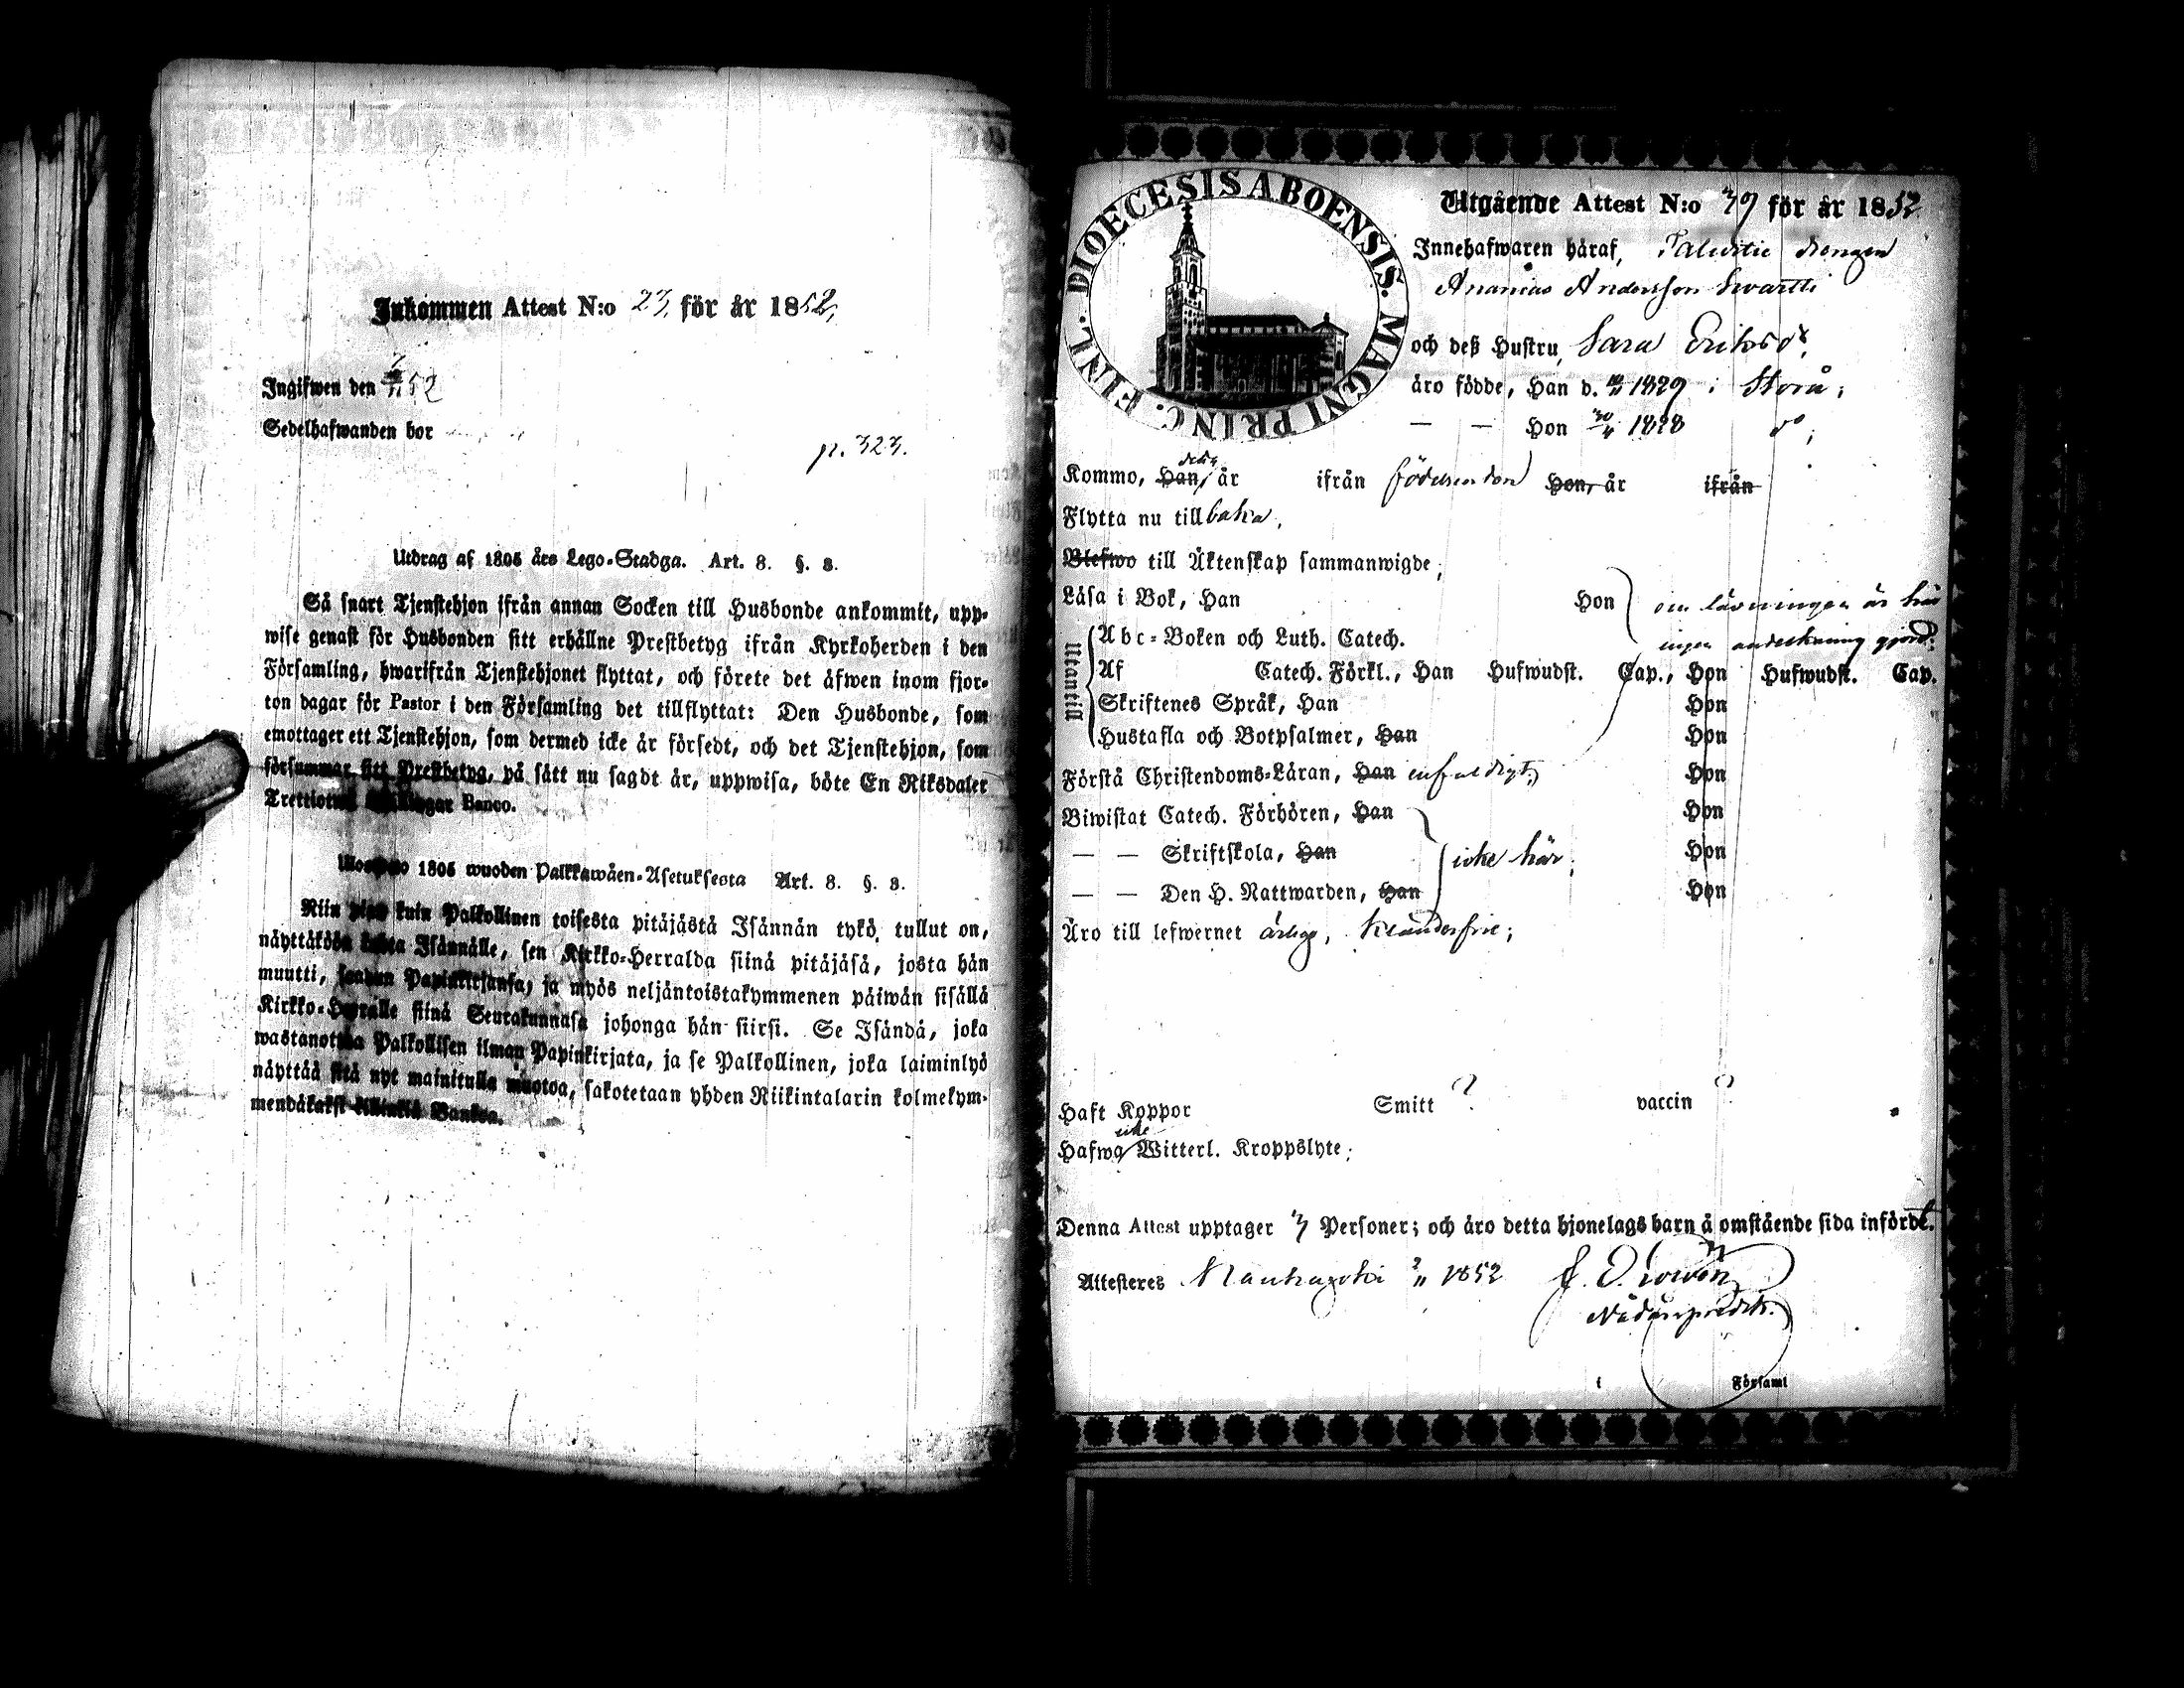 Inkommen Attest N:o 23 för år 1852,
Ingifwen den 52
Sedelhafwanden bor
p. 323.
Utdrag af 1805 års Lego-Stadga. Art. 8. §. 8.
Så snart Tjenstehjon ifrån annan Socken till Husbonde ankommit, upp-
wise genast för Husbonden sitt erhållne Prestbetyg ifrån Kyrkoherden i den
Församling, hwarifrån Tjenstehjonet flyttat, och förete det äfwen inom fjor-
ton dagar för Pastor i den Församling det tillflyttat: Den Husbonde, som
emottager ett Tjenstehjon, som dermed icke är försedt, och det Tjenstehjon, som
försummar sitt Prestbetyg, på sätt nu sagdt är, uppwisa, böte En Riksdaler
Banco.
1805 wuoden Palkkawäen-Asetuksesta Art. 8. §. 8.
Niin kuin Palkollinen toisesta pitäjästä Isännän tykö tullut on,
näyttäköön Isännälle, sen Kirkko-Herralda siinä pitäjäsä, josta hän
muutti, saadun Papinkirjansa, ja myös neljäntoistakymmenen päiwän sisällä
Kirkko-Herralle siinä Seurakunnasa johonga hän siirsi. Se Isändä, joka
wastanottaa Palkollisen ilman Papinkirjata, ja se Palkollinen, joka laiminlyö
näyttää sitä nyt mainitulla muotoa, sakotetaan yhden Riikintalarin kolmekym-
mendäkaksi Bankoa.
DIOECESIS ABOENSIS. MAGNI PRINC. FINL.
Utgående Attest N:o 39 för år 1852
Innehafwaren häraf, drengen
Ananias Andersson Svartti
och deß Hustru, Sara Eriksdr,
äro födde, Han d. 1829 i Storå;
— — Hon 30/4 1828 do;
Kommo, Han, år ifrån födelseorten Hon, år ifrån
Flytta nu tillbaka,
Blefwo till Äktenskap sammanwigde;
Läsa i Bok, Han Hon om läsningen är här
ingen anteckning gjord;
Utantill
Abc-Boken och Luth. Catech.
Af Catech. Förkl., Han Hufwudst. Cap., Hon Hufwudst. Cap.
Skriftenes Språk, Han Hon
Hustafla och Botpsalmer, Han Hon
Förstå Christendoms-Läran, Han enfaldigt; Hon
Biwistat Catech. Förhören, Han Hon
— — Skriftskola, Han icke här; Hon
— — Den H. Nattwarden, Han Hon
Äro till lefwernet ärlige, klanderfrie;
Haft Koppor Smitt ? vaccin ?
icke
Hafwa Witterl. Kroppslyte;
Denna Attest upptager 3 Personer; och äro detta hjonelags barn å omstående sida infördt.
Attesteres Kauhajoki 1852
Nådårspredik.
i Församl